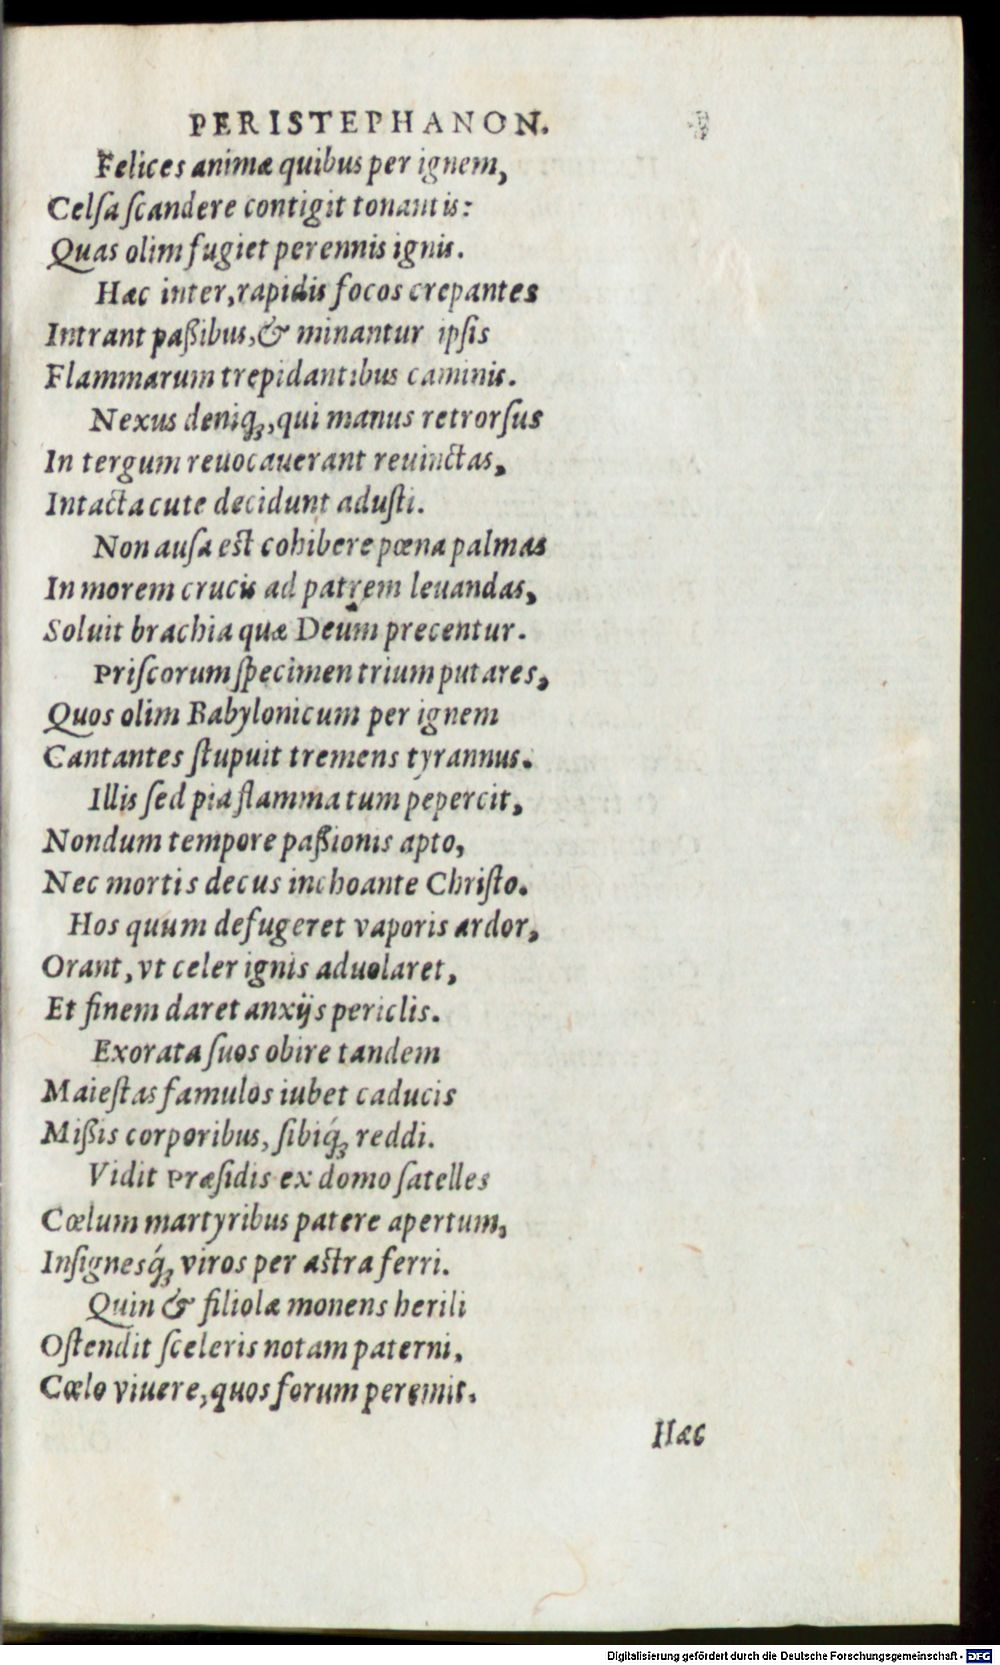 PERISTEPHANON.
Felices animæ quibus per ignem,
Celſa ſcandere contigit tonantis:
Quas olim fugiet perennis ignis.
Hæc inter, rapidis focos crepantes
Intrant paßibus, & minantur ipſis
Flammarum trepidantibus caminis.
Nexus deniq́;, qui manus retrorſus
In tergum reuocauerant reuinctas,
Intacta cute decidunt aduſti.
Non auſa eſt cohibere pœna palmas
In morem crucis ad patrem leuandas,
Soluit brachia quæ Deum precentur.
Priſcorum ſpecimen trium putares,
Quos olim Babylonicum per ignem
Cantantes ſtupuit tremens tyrannus.
Illis ſed pia flamma tum pepercit,
Nondum tempore paßionis apto,
Nec mortis decus inchoante Chriſto.
Hos quum defugeret vaporis ardor,
Orant, vt celer ignis aduolaret,
Et finem daret anxijs periclis.
Exorata ſuos obire tandem
Maieſtas famulos iubet caducis
Mißis corporibus, ſibiq́; reddi.
Vidit Præſidis ex domo ſatelles
Cœlum martyribus patere apertum,
Inſignesq́; viros per aſtra ferri.
Quin & filiolæ monens herili
Oſtendit ſceleris notam paterni,
Cœlo viuere, quos forum peremit.
Hæc
Digitalisierung gefördert durch die Deutsche Forschungsgemeinschaft - DFG